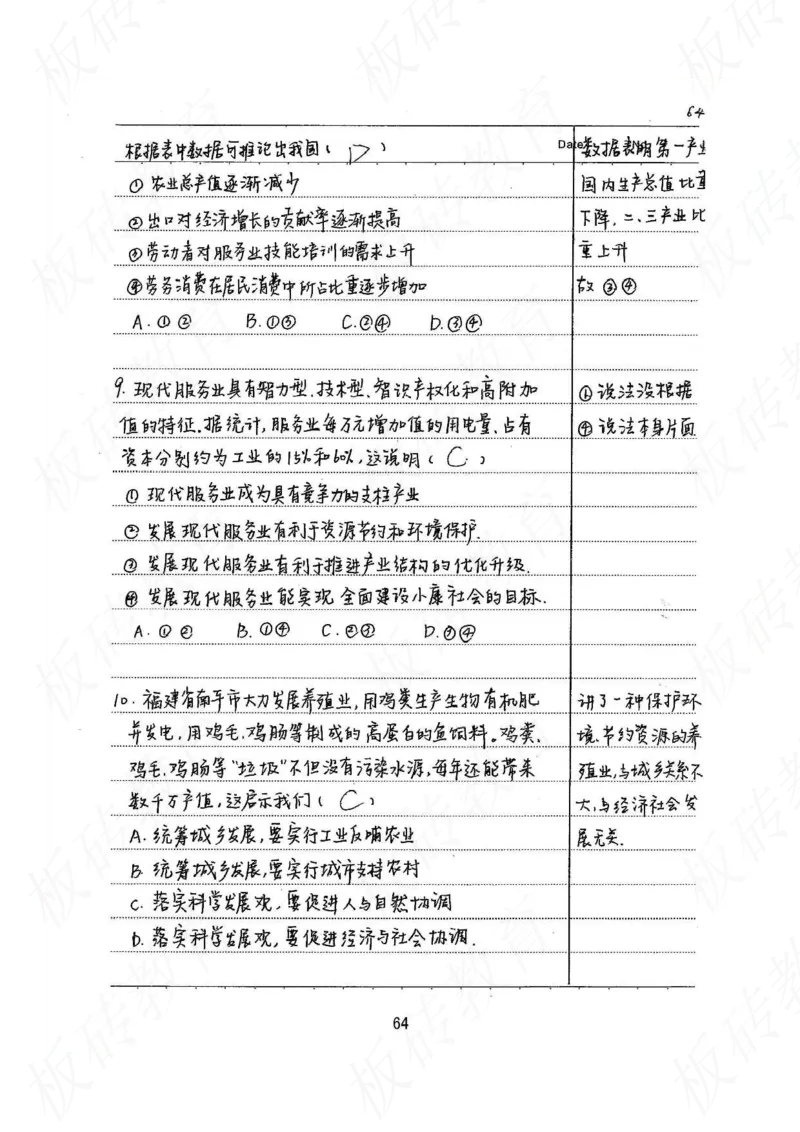 64
Date
根据表中数据可推论出我国( D )
① 农业总产值逐渐减少
② 出口对经济增长的贡献率逐渐提高
③ 劳动者对服务业技能培训的需求上升
④ 劳务消费在居民消费中所占比重逐步增加
A.①② B.①③ C.②④ D.③④
数据表明第一产业
国内生产总值比重
下降,二、三产业比
重上升
故 ③④
9. 现代服务业具有智力型、技术型、知识产权化和高附加
值的特征。据统计,服务业每万元增加值的用电量、占有
资本分别约为工业的15%和60%,这说明( C )
① 现代服务业成为具有竞争力的支柱产业
② 发展现代服务业有利于资源节约和环境保护.
③ 发展现代服务业有利于推进产业结构的优化升级.
④ 发展现代服务业能实现全面建设小康社会的目标.
A.①② B.①④ C.②③ D.③④
① 说法没根据
④ 说法本身片面
10. 福建省南平市大力发展养殖业,用鸡粪生产生物有机肥
并发电,用鸡毛、鸡肠等制成的高蛋白的鱼饲料。鸡粪、
鸡毛、鸡肠等“垃圾”不但没有污染水源,每年还能带来
数千万产值,这启示我们( C )
A. 统筹城乡发展,要实行工业反哺农业
B. 统筹城乡发展,要实行城市支持农村
C. 落实科学发展观,要促进人与自然协调
D. 落实科学发展观,要促进经济与社会协调.
讲了一种保护环
境、节约资源的养
殖业,与城乡关系不
大,与经济社会发
展无关.
64
板砖教育